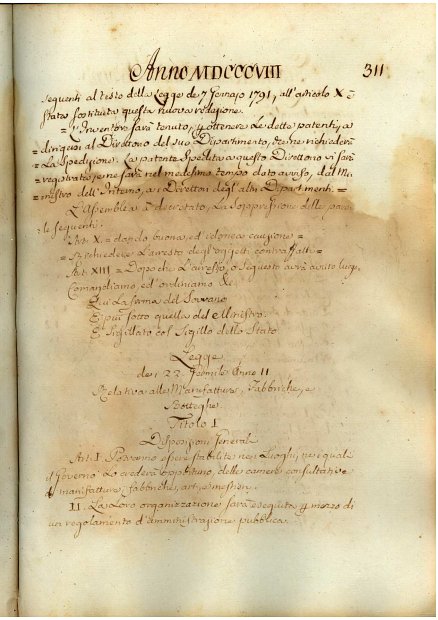 Anno MDCCCVIII 311
seguenti al testo della Legge de 7 Gennajo 1791, all'articolo X è
stata sostituita questa nuova redazione.
= L'Inventore sarà tenuto, ottenere le dette patenti, a
dirigersi al Direttorio del suo Dipartimento, che ne richiederà
La Spedizione. La patente spedita a questo Direttorio vi sarà
registrata, e ne sarà nel medesimo tempo dato avviso, dal Mi=
nistro dell'Interno, a i Direttori degl'altri Dipartimenti. =
L'Assemblea à decretato, La Soppressione delle paro=
le seguenti.
Art. X. = dando buona, ed idonea cauzione =
= Richiedere L'arresto degl'oggetti contraffatti =
Art. XIII = Dopo che L'arresto, o Sequestro avrà avuto luogo,
Comandiamo, ed ordiniamo &c.
Qui La firma del Sovrano
E più sotto quella del Ministro.
E Sigillato col Sigillo dello Stato
Legge
de 22. Anno 11
Relativa alle Manufatture, Fabbriche, e
Botteghe.
Titolo I
Disposizioni Generali
Art. I. Potranno essere stabilite nei Luoghi, ne i quali
il Governo Lo crederà opportuno, delle camere consultative
di manifatture, fabbriche, arti, e mestieri.
II. La Loro organizzazione sarà eseguita mezzo di
un regolamento d'amministrazione pubblica.